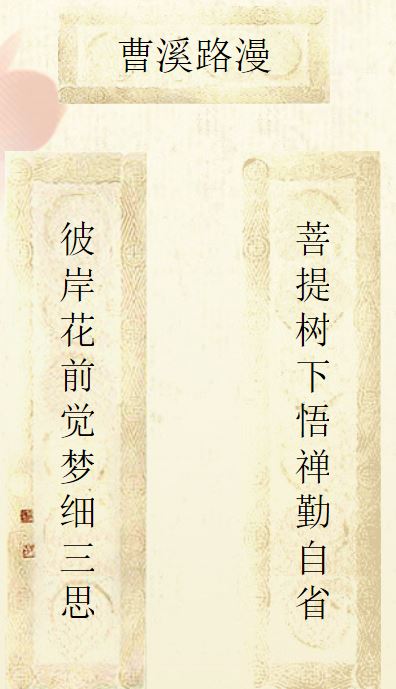 曹溪路漫
菩提树下悟禅勤自省
彼岸花前觉梦细三思